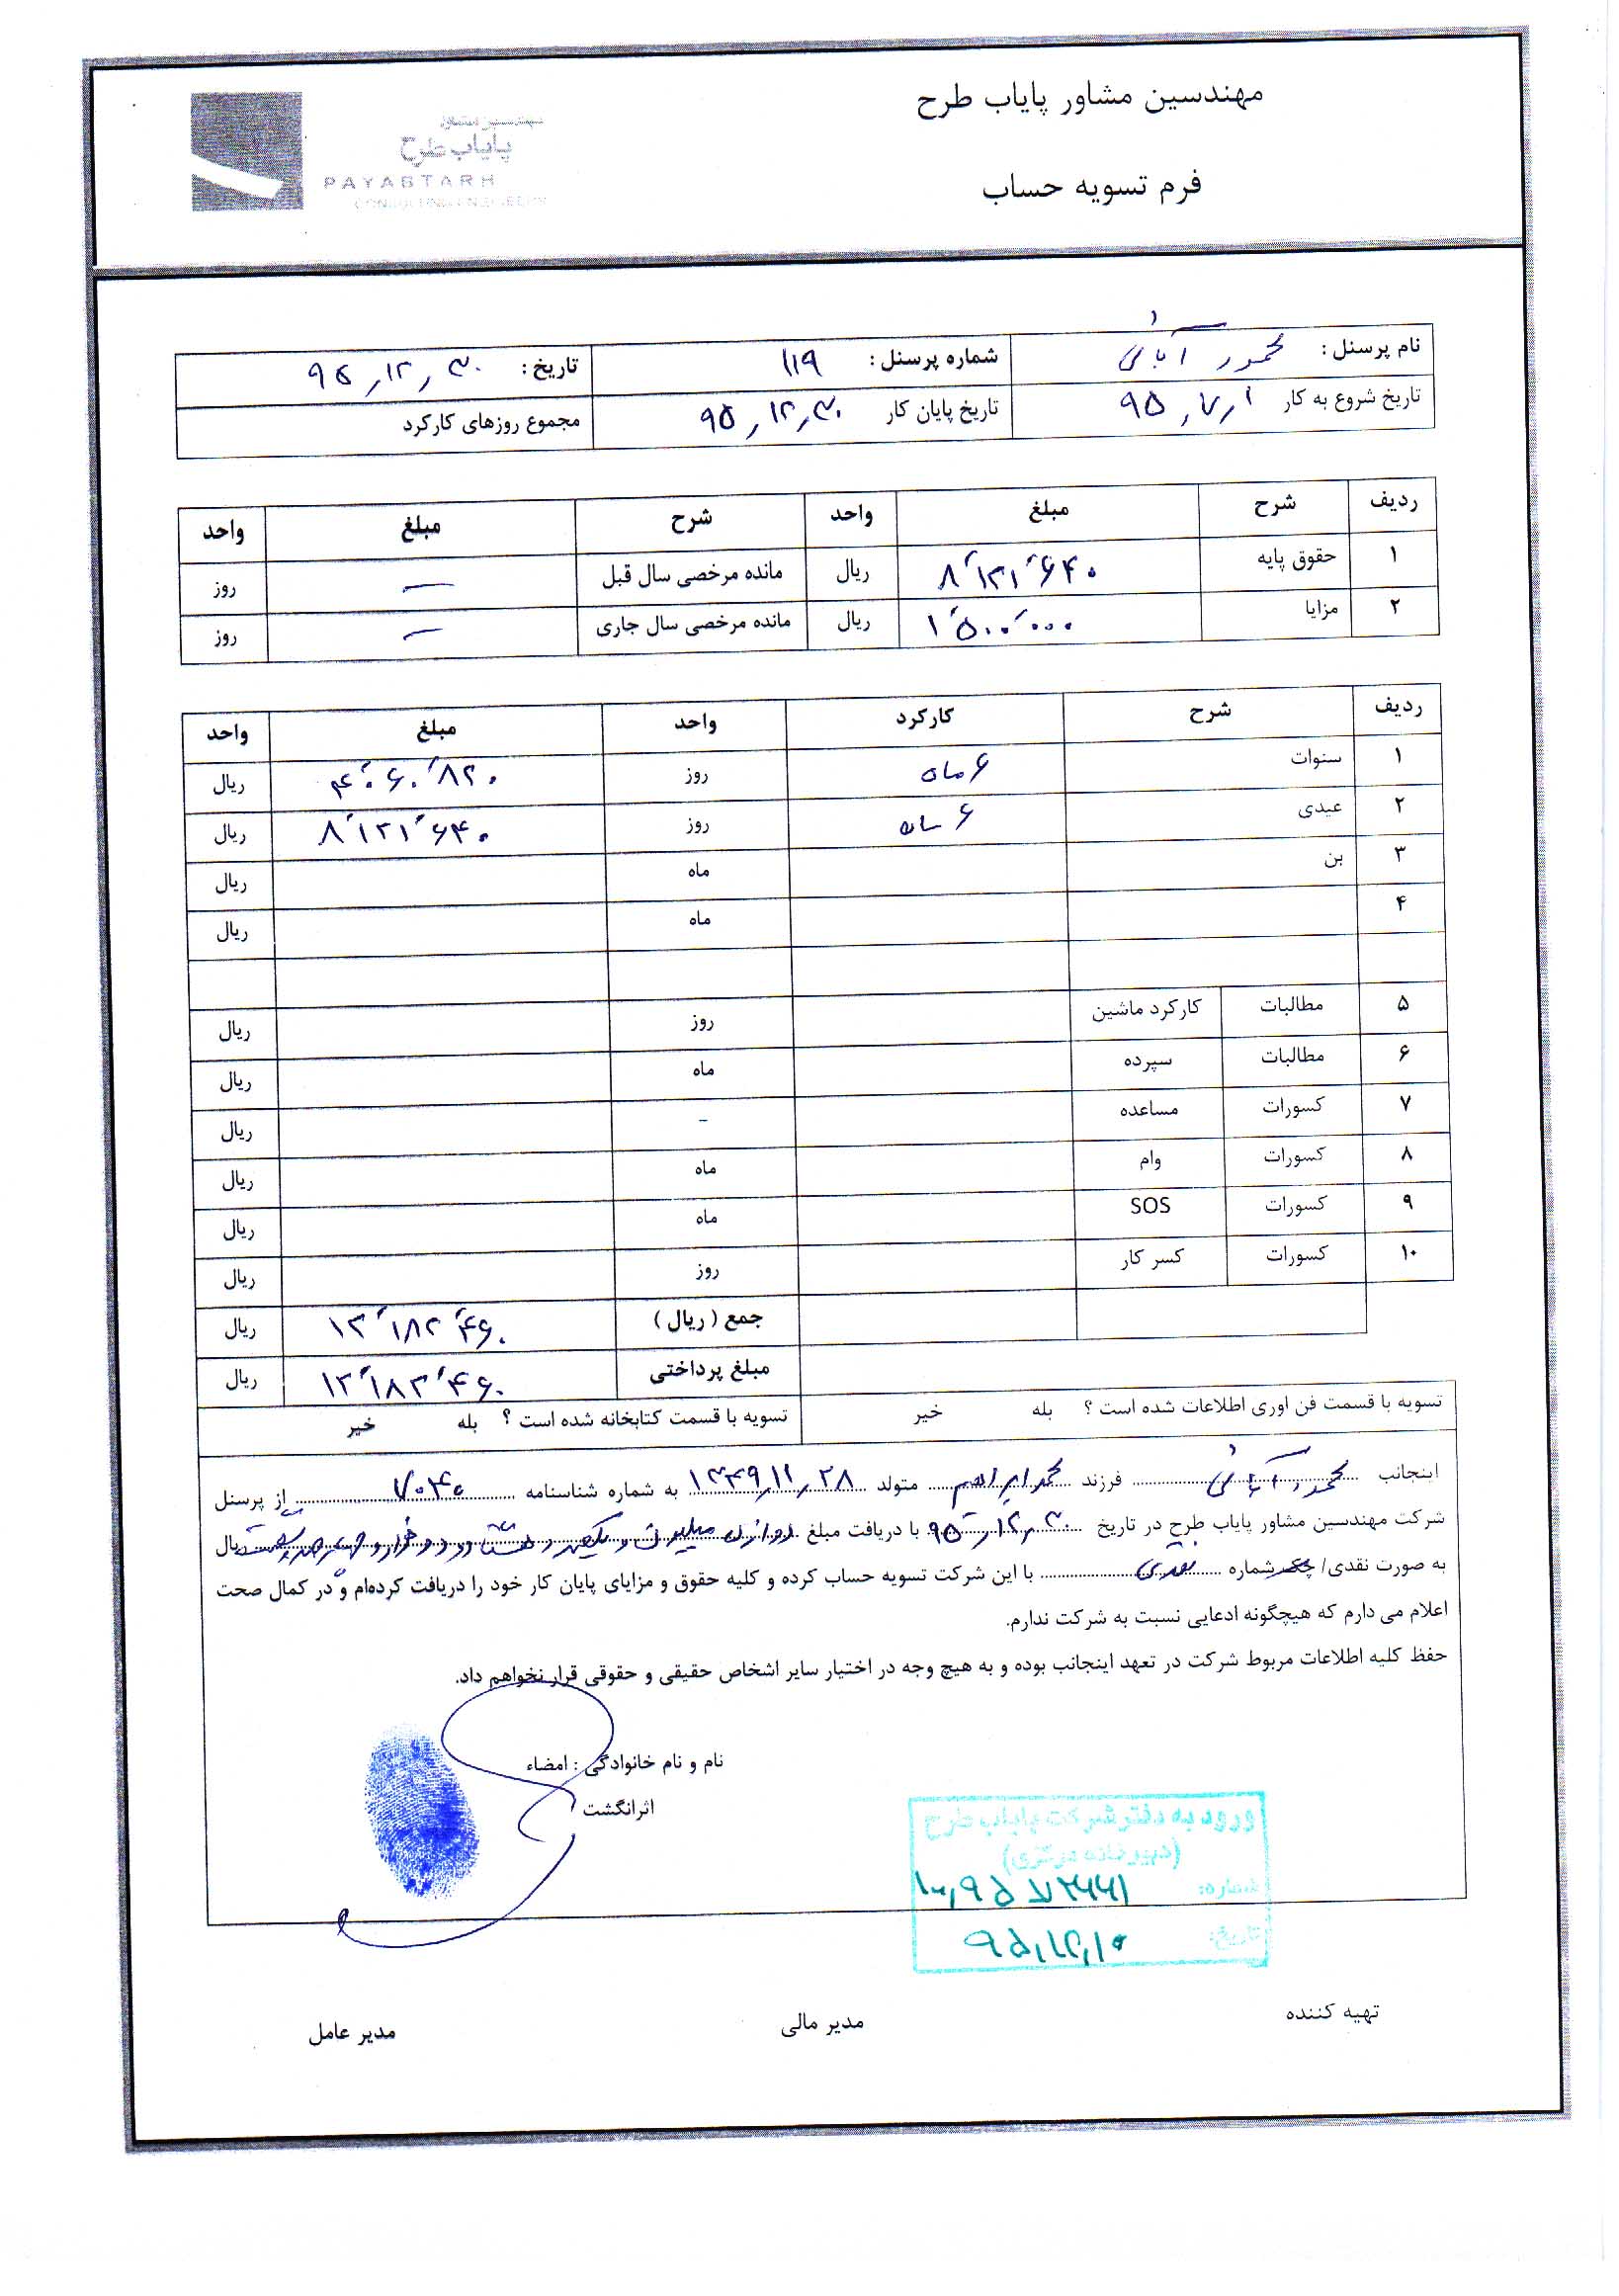 مهندسین مشاور پایاب طرح
مهندسین مشاور
پایاب طرح
PAYABTARH
CONSULTING ENGINEERS
فرم تسویه حساب
نام پرسنل : محمود آبائی شماره پرسنل : ۱۱۹ تاریخ : ۹۵٫۱۲٫۳۰
تاریخ شروع به کار ۹۵٫۷٫۱ تاریخ پایان کار ۹۵٫۱۲٫۳۰ مجموع روزهای کارکرد
ردیف شرح مبلغ واحد شرح مبلغ واحد
۱ حقوق پایه ۸٬۱۲۱٬۶۴۰ ریال مانده مرخصی سال قبل — روز
۲ مزایا ۱٬۵۰۰٬۰۰۰ ریال مانده مرخصی سال جاری — روز
ردیف شرح کارکرد واحد مبلغ واحد
۱ سنوات ۶ ماه روز ۴٬۰۶۰٬۸۲۰ ریال
۲ عیدی ۶ ماه روز ۸٬۱۲۱٬۶۴۰ ریال
۳ بن ماه ریال
۴ ماه ریال
۵ مطالبات کارکرد ماشین روز ریال
۶ مطالبات سپرده ماه ریال
۷ کسورات مساعده - ریال
۸ کسورات وام ماه ریال
۹ کسورات SOS ماه ریال
۱۰ کسورات کسر کار روز ریال
جمع ( ریال ) ۱۲٬۱۸۲٬۴۶۰ ریال
مبلغ پرداختی ۱۲٬۱۸۲٬۴۶۰ ریال
تسویه با قسمت فن اوری اطلاعات شده است ؟ بله خیر تسویه با قسمت کتابخانه شده است ؟ بله خیر
اینجانب محمود آبائی فرزند محمد ابراهیم متولد ۱۳۴۹٫۱۱٫۲۸ به شماره شناسنامه ۷۰۴۰ از پرسنل
شرکت مهندسین مشاور پایاب طرح در تاریخ ۹۵٫۱۲٫۳۰ با دریافت مبلغ دوازده میلیون و یکصد و هشتاد و دو هزار و چهارصد و شصت ریال
به صورت نقدی/ چک شماره با این شرکت تسویه حساب کرده و کلیه حقوق و مزایای پایان کار خود را دریافت کرده‌ام و در کمال صحت
اعلام می دارم که هیچگونه ادعایی نسبت به شرکت ندارم.
حفظ کلیه اطلاعات مربوط شرکت در تعهد اینجانب بوده و به هیچ وجه در اختیار سایر اشخاص حقیقی و حقوقی قرار نخواهم داد.
نام و نام خانوادگی : امضاء
اثرانگشت
ورود به دفتر شرکت پایاب طرح
(دبیرخانه مرکزی)
شماره:
تاریخ: ۹۵٫۱۲٫۱۰
تهیه کننده مدیر مالی مدیر عامل